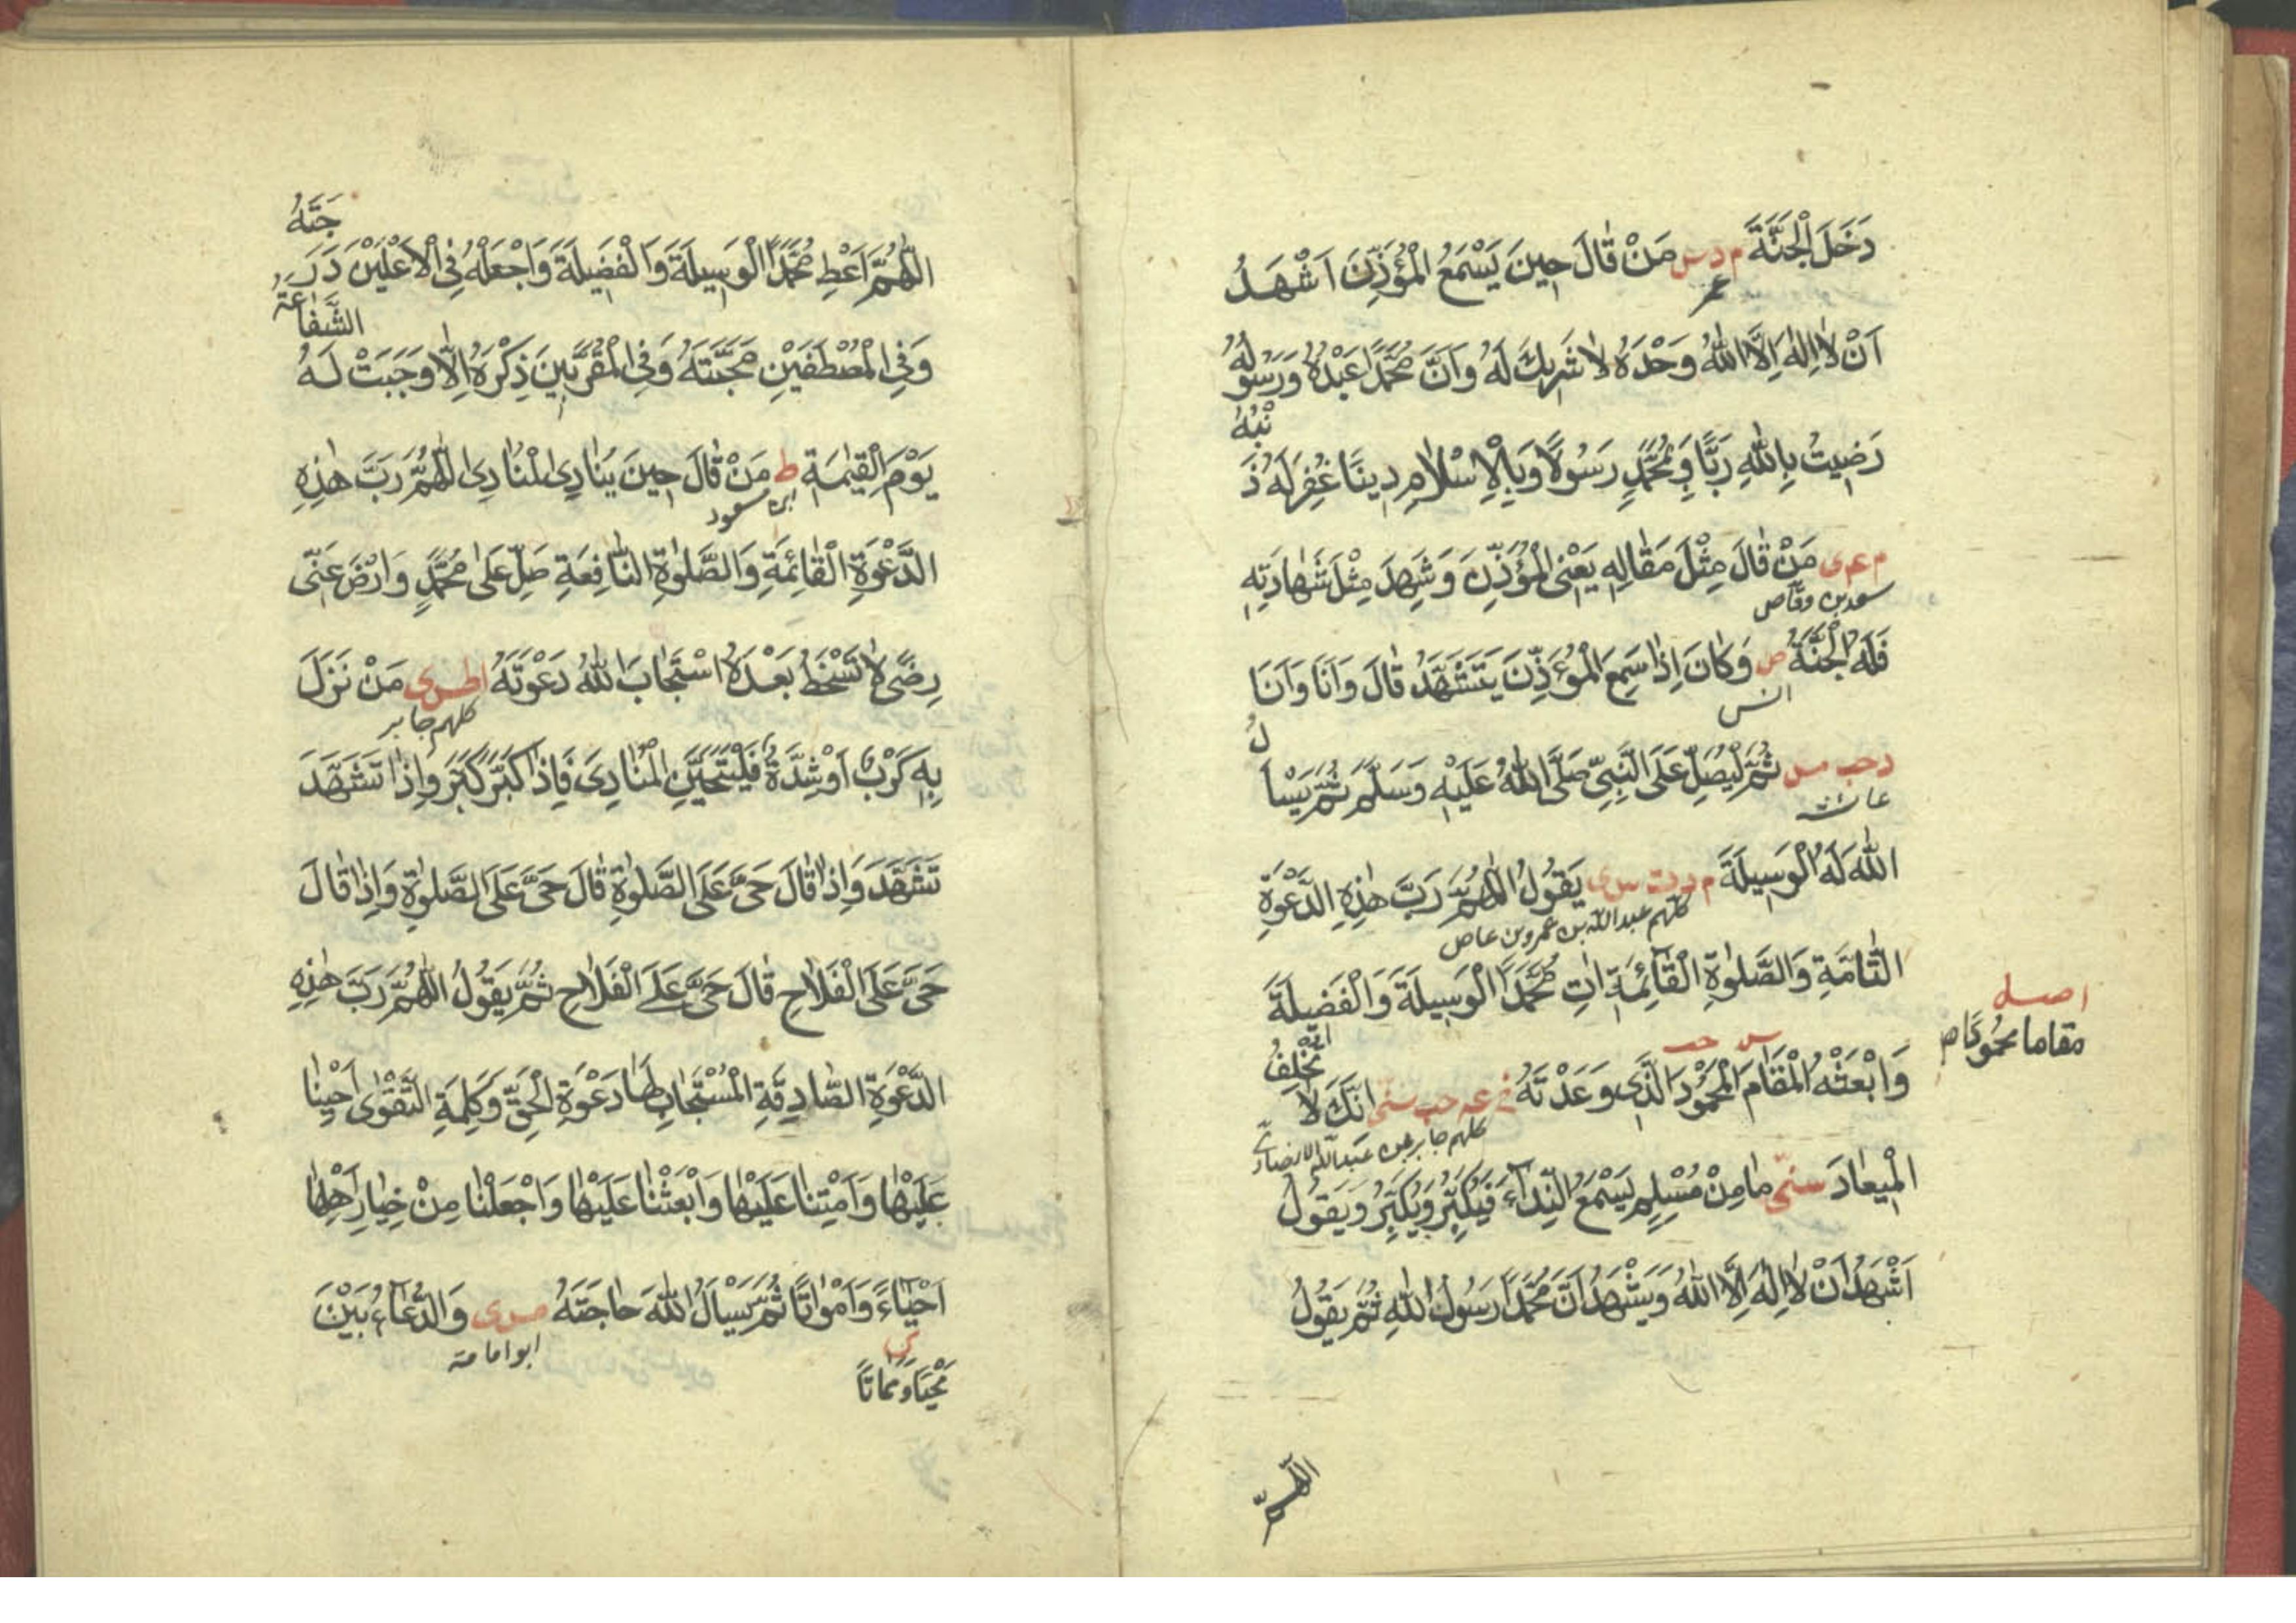 دَخَلَ الْجَنَّةَ م د س مَنْ قَالَ حِينَ يَسْمَعُ الْمُؤَذِّنَ اَشْهَدُ
عمر
اَنْ لَا اِلٰهَ اِلَّا اللّٰهُ وَحْدَهُ لَا شَرِيكَ لَهُ وَاَنَّ مُحَمَّدًا عَبْدُهُ وَرَسُولُهُ
رَضِيتُ بِاللّٰهِ رَبًّا وَبِمُحَمَّدٍ رَسُولًا وَبِالْاِسْلَامِ دِينًا غُفِرَ لَهُ ذَنْبُهُ
م عه ى مَنْ قَالَ مِثْلَ مَقَالِهِ يَعْنِى الْمُؤَذِّنَ وَشَهِدَ مِثْلَ شَهَادَتِهِ
سعد بن وقاص
فَلَهُ الْجَنَّةُ ص وَكَانَ اِذَا سَمِعَ الْمُؤَذِّنَ يَتَشَهَّدُ قَالَ وَاَنَا وَاَنَا
انس
د حب مس ثُمَّ لْيُصَلِّ عَلَى النَّبِىِّ صَلَّى اللّٰهُ عَلَيْهِ وَسَلَّمَ ثُمَّ يَسْاَلُ
عائشة
اللّٰهَ لَهُ الْوَسِيلَةَ م د ت س ى يَقُولُ اللّٰهُمَّ رَبَّ هٰذِهِ الدَّعْوَةِ
كلهم عبد الله بن عمرو بن عاص
التَّامَّةِ وَالصَّلٰوةِ الْقَائِمَةِ اٰتِ مُحَمَّدًا الْوَسِيلَةَ وَالْفَضِيلَةَ
اصل
مقاما محمودا
س حب
وَابْعَثْهُ الْمَقَامَ الْمَحْمُودَ الَّذِى وَعَدْتَهُ خ عه حب سنى اِنَّكَ لَا تُخْلِفُ
كلهم جابر بن عبد الله الانصارى
الْمِيعَادَ سنى مَا مِنْ مُسْلِمٍ يَسْمَعُ النِّدَاءَ فَيُكَبِّرُ وَيُكَبِّرُ وَيَقُولُ
اَشْهَدُ اَنْ لَا اِلٰهَ اِلَّا اللّٰهُ وَيَشْهَدُ اَنَّ مُحَمَّدًا رَسُولُ اللّٰهِ ثُمَّ يَقُولُ
اللّٰهم
اللّٰهُمَّ اَعْطِ مُحَمَّدًا الْوَسِيلَةَ وَالْفَضِيلَةَ وَاجْعَلْهُ فِى الْاَعْلَيْنَ دَرَجَتَهُ
وَفِى الْمُصْطَفَيْنَ مَحَبَّتَهُ وَفِى الْمُقَرَّبِينَ ذِكْرَهُ اِلَّا وَجَبَتْ لَهُ الشَّفَاعَةُ
يَوْمَ الْقِيٰمَةِ ط مَنْ قَالَ حِينَ يُنَادِى الْمُنَادِى اللّٰهُمَّ رَبَّ هٰذِهِ
ابن مسعود
الدَّعْوَةِ الْقَائِمَةِ وَالصَّلٰوةِ النَّافِعَةِ صَلِّ عَلٰى مُحَمَّدٍ وَارْضَ عَنِّى
رِضًى لَا تَسْخَطُ بَعْدَهُ اسْتَجَابَ اللّٰهُ دَعْوَتَهُ ا ط س ى مَنْ نَزَلَ
كلهم جابر
بِهِ كَرْبٌ اَوْ شِدَّةٌ فَلْيَتَحَيَّنِ الْمُنَادِىَ فَاِذَا كَبَّرَ كَبَّرَ وَاِذَا تَشَهَّدَ
تَشَهَّدَ وَاِذَا قَالَ حَىَّ عَلَى الصَّلٰوةِ قَالَ حَىَّ عَلَى الصَّلٰوةِ وَاِذَا قَالَ
حَىَّ عَلَى الْفَلَاحِ قَالَ حَىَّ عَلَى الْفَلَاحِ ثُمَّ يَقُولُ اللّٰهُمَّ رَبَّ هٰذِهِ
الدَّعْوَةِ الصَّادِقَةِ الْمُسْتَجَابِ لَهَا دَعْوَةِ الْحَقِّ وَكَلِمَةِ التَّقْوٰى اَحْيِنَا
عَلَيْهَا وَاَمِتْنَا عَلَيْهَا وَابْعَثْنَا عَلَيْهَا وَاجْعَلْنَا مِنْ خِيَارِ اَهْلِهَا
اَحْيَاءً وَاَمْوَاتًا ثُمَّ يَسْاَلُ اللّٰهَ حَاجَتَهُ مس ى وَالدُّعَاءُ بَيْنَ
ابو امامة
مَحْيًا وَمَمَاتًا